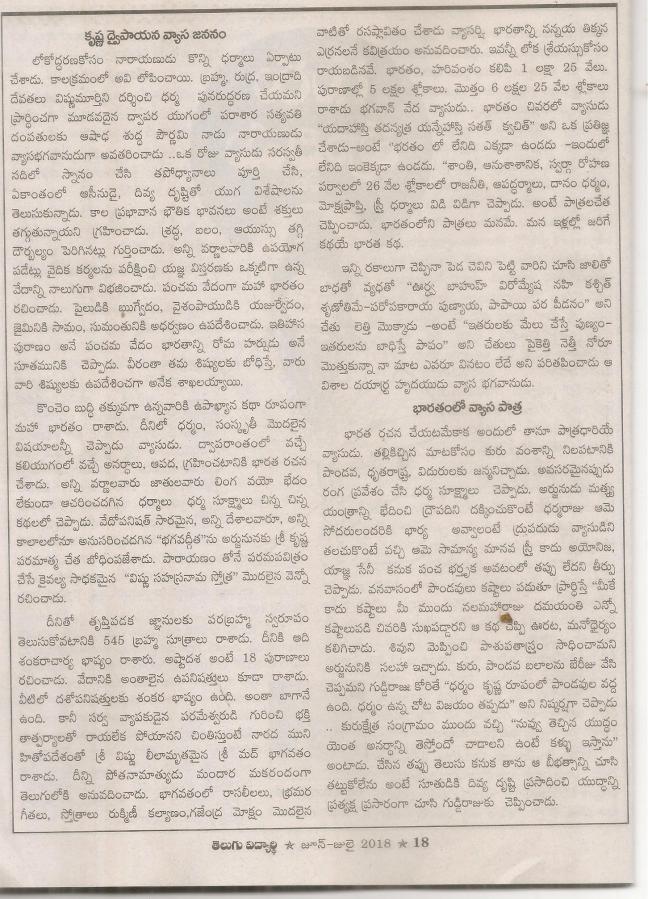 కృష్ణ ద్వైపాయన వ్యాస జననం
లోకోద్ధరణకోసం నారాయణుడు కొన్ని ధర్మాలు ఏర్పాటు
చేశాడు. కాలక్రమంలో అవి లోపించాయి. బ్రహ్మ, రుద్ర, ఇంద్రాది
దేవతలు విష్ణుమూర్తిని దర్శించి ధర్మ పునరుద్ధరణ చేయమని
ప్రార్ధించగా మూడవదైన ద్వాపర యుగంలో పరాశార సత్యవతి
దంపతులకు ఆషాఢ శుద్ధ పౌర్ణమి నాడు నారాయణుడు
వ్యాసభగవానుడుగా అవతరించాడు ..ఒక రోజు వ్యాసుడు సరస్వతీ
నదిలో స్నానం చేసి తపోధ్యానాలు పూర్తి చేసి,
ఏకాంతంలో ఆసీనుడై, దివ్య దృష్టితో యుగ విశేషాలను
తెలుసుకున్నాడు. కాల ప్రభావాన భౌతిక భావనలు అంటే శక్తులు
తగ్గుతున్నాయని గ్రహించాడు. శ్రద్ధ, బలం, ఆయుస్సు తగ్గి
దౌర్బల్యం పెరిగినట్లు గుర్తించాడు. అన్ని వర్ణాలవారికి ఉపయోగ
పడేట్లు వైదిక కర్మలను పరీక్షించి యజ్ఞ విస్తరణకు ఒక్కటిగా ఉన్న
వేదాన్ని నాలుగుగా విభజించాడు. పంచమ వేదంగా మహా భారతం
రచించాడు. పైలుడికి ఋగ్వేదం, వైశంపాయుడికి యజుర్వేదం,
జైమినికి సామం, సుమంతునికి అధర్వణం ఉపదేశించాడు. ఇతిహాస
పురాణం అనే పంచమ వేదం భారతాన్ని రోమ హర్షుడు అనే
సూతమునికి చెప్పాడు. వీరంతా తమ శిష్యులకు బోధిస్తే, వారు
వారి శిష్యులకు ఉపదేశించగా అనేక శాఖలయ్యాయి.
కొంచెం బుద్ధి తక్కువగా ఉన్నవారికి ఉపాఖ్యాన కథా రూపంగా
మహా భారతం రాశాడు. దీనిలో ధర్మం, సంస్కృతీ మొదలైన
విషయాలన్నీ చెప్పాడు వ్యాసుడు. ద్వాపరాంతంలో వచ్చే
కలియుగంలో వచ్చే అనర్ధాలు, ఆపద, గ్రహించటానికి భారత రచన
చేశాడు. అన్ని వర్ణాలవారు జాతులవారు లింగ వయో భేదం
లేకుండా ఆచరించదగిన ధర్మాలు ధర్మ సూక్ష్మాలు చిన్న చిన్న
కథలలో చెప్పాడు. వేదోపనిషత్ సారమైన, అన్ని దేశాలవారూ, అన్ని
కాలాలలోనూ అనుసరించదగిన "భగవద్గీత"ను అర్జునునకు శ్రీ కృష్ణ
పరమాత్మ చేత బోధింపజేశాడు. పారాయణం తోనే పరమపవిత్రం
చేసే కైవల్య సాధకమైన "విష్ణు సహస్రనామ స్తోత్ర" మొదలైన వెన్నో
రచించాడు.
దీనితో తృప్తిపడక జ్ఞానులకు పరబ్రహ్మ స్వరూపం
తెలుసుకోవటానికి 545 బ్రహ్మ సూత్రాలు రాశాడు. దీనికి ఆది
శంకరాచార్య భాష్యం రాశారు. అష్టాదశ అంటే 18 పురాణాలు
రచించాడు. వేదానికి అంతాలైన ఉపనిషత్తులు కూడా రాశాడు.
వీటిలో దశోపనిషత్తులకు శంకర భాష్యం ఉంది. అంతా బాగానే
ఉంది. కానీ సర్వ వ్యాపకుడైన పరమేశ్వరుడి గురించి భక్తి
తాత్పర్యాలతో రాయలేక పోయానని చింతిస్తుంటే నారద ముని
హితోపదేశంతో శ్రీ విష్ణు లీలామృతమైన శ్రీ మద్ భాగవతం
రాశాడు. దీన్ని పోతనామాత్యుడు మందార మకరందంగా
తెలుగులోకి అనువదించాడు. భాగవతంలో రాసలీలలు, భ్రమర
గీతలు, స్తోత్రాలు రుక్మిణీ కల్యాణం,గజేంద్ర మోక్షం మొదలైన
వాటితో రసప్లావితం చేశాడు వ్యాసర్షి. భారతాన్ని నన్నయ తిక్కన
ఎర్రనలనే కవిత్రయం అనువదించారు. ఇవన్నీ లోక శ్రేయస్సుకోసం
రాయబడినవే. భారతం, హరివంశం కలిపి 1 లక్షా 25 వేలు.
పురాణాల్లో 5 లక్షల శ్లోకాలు. మొత్తం 6 లక్షల 25 వేల శ్లోకాలు
రాశాడు భగవాన్ వేద వ్యాసుడు.. భారతం చివరలో వ్యాసుడు
"యదాహస్తి తదన్యత్ర యన్నేహాస్తి సతత్ క్వచిత్" అని ఒక ప్రతిజ్ఞ
చేశాడు-అంటే "భరతం లో లేనిది ఎక్కడా ఉండదు -ఇందులో
లేనిది ఇంకెక్కడా ఉండదు. "శాంతి, ఆనుశాశానిక, స్వర్గా రోహణ
పర్వాలలో 26 వేల శ్లోకాలలో రాజనీతి, ఆపద్ధర్మాలు, దానం ధర్మం,
మోక్షప్రాప్తి, స్త్రీ ధర్మాలు విడి విడిగా చెప్పాడు. అంటే పాత్రలచేత
చెప్పించాడు. భారతంలోని పాత్రలు మనమే. మన ఇళ్లల్లో జరిగే
కథయే భారత కథ.
ఇన్ని రకాలుగా చెప్పినా పెడ చెవిని పెట్టి వారిని చూసి జాలితో
బాధతో వ్యధతో "ఊర్ధ్వ బాహుమ్ విరోమ్యేష నహి కశ్చిత్
శృణోతిమే-పరోపకారాయ పుణ్యాయ, పాపాయి పర పీడనం" అని
చేతు లెత్తి మొక్కాడు -అంటే "ఇతరులకు మేలు చేస్తే పుణ్యం-
ఇతరులను బాధిస్తే పాపం" అని చేతులు పైకెత్తి నెత్తీ నోరూ
మొత్తుకున్నా నా మాట ఎవరూ వినటం లేదే అని పరితపించాడు ఆ
విశాల దయార్ద్ర హృదయుడు వ్యాస భగవానుడు.
భారతంలో వ్యాస పాత్ర
భారత రచన చేయటమేకాక అందులో తానూ పాత్రధారియే
వ్యాసుడు. తల్లికిచ్చిన మాటకోసం కురు వంశాన్ని నిలపటానికి
పాండవ, ధృతరాష్ట్ర, విదురులకు జన్మనిచ్చాడు. అవసరమైనప్పుడు
రంగ ప్రవేశం చేసి ధర్మ సూక్ష్మాలు చెప్పాడు. అర్జునుడు మత్స్య
యంత్రాన్ని భేదించి ద్రౌపదిని దక్కించుకొంటే ధర్మరాజు ఆమె
సోదరులందరికి భార్య అవ్వాలంటే ద్రుపదుడు వ్యాసుడిని
తలచుకొంటే వచ్చి ఆమె సామాన్య మానవ స్త్రీ కాదు అయోనిజ,
యాజ్ఞ సేనీ కనుక పంచ భర్తృక అవటంలో తప్పు లేదని తీర్పు
చెప్పాడు. వనవాసంలో పాండవులు కష్టాలు పడుతూ ప్రార్ధిస్తే "మీకే
కాదు కష్టాలు మీ ముందు నలమహారాజు దమయంతి ఎన్నో
కష్టాలుపడి చివరికి సుఖపడ్డారని ఆ కథ చెప్పి ఊరట, మనోధైర్యం
కలిగించాడు. శివుని మెప్పించి పాశుపతాస్త్రం సాధించామని
అర్జునునికి సలహా ఇచ్చాడు. కురు, పాండవ బలాలను బేరీజు వేసి
చెప్పమని గుడ్డిరాజు కోరితే "ధర్మం కృష్ణ రూపంలో పాండవుల వద్ద
ఉంది. ధర్మం ఉన్న చోట విజయం తప్పదు" అని నిష్కర్షగా చెప్పాడు
.. కురుక్షేత్ర సంగ్రామం ముందు వచ్చి "నువ్వు తెచ్చిన యుద్ధం
యెంత అనర్ధాన్ని తెస్తోందో చూడాలని ఉంటే కళ్ళు ఇస్తాను"
అంటాడు. చేసిన తప్పు తెలుసు కనుక తాను ఆ బీభత్సాన్ని చూసి
తట్టుకోలేను అంటే సూతుడికి దివ్య దృష్టి ప్రసాదించి యుద్ధాన్ని
ప్రత్యక్ష ప్రసారంగా చూసి గుడ్డిరాజుకు చెప్పించాడు.
తెలుగు విద్యార్థి ★ జూన్-జులై 2018 ★ 18